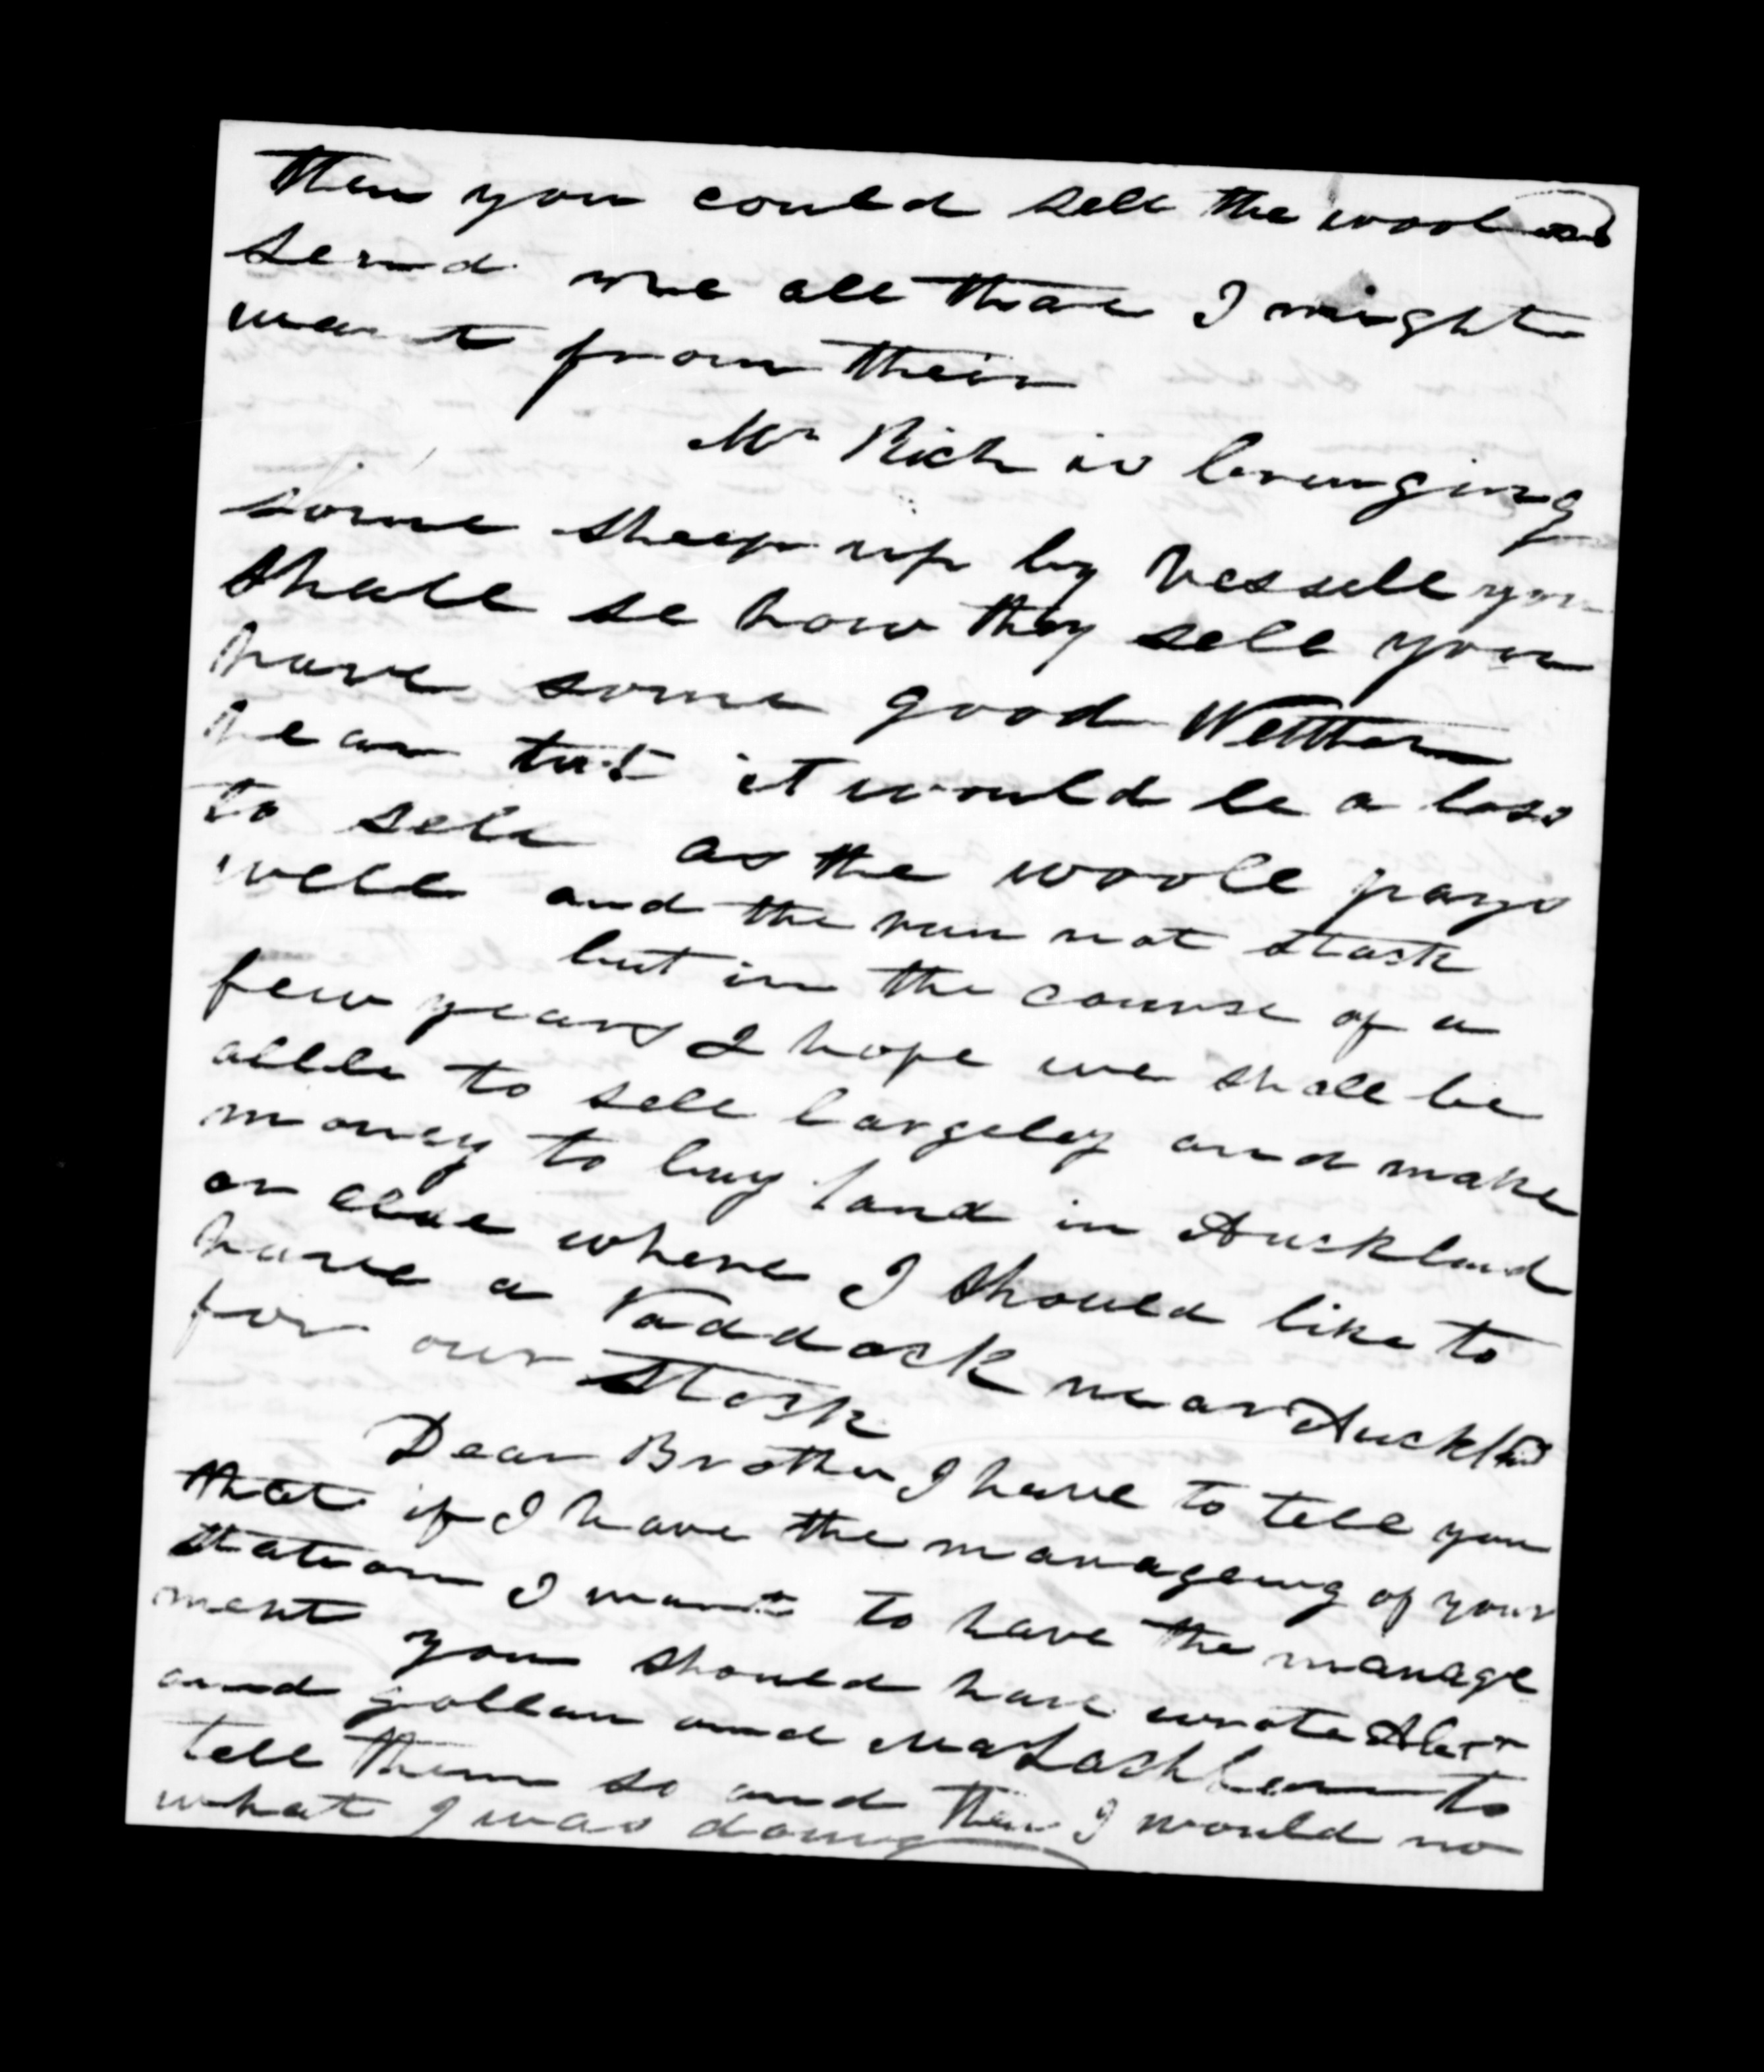 then you could sell the wool and
send me all that I might
want from their
Mr Rich is bringing
some sheep up by Vessell you
shall se how they sell you
have some good Wetthers
hear but it would be a loss
to sell as the woole pays
well and the run not stock
but in the course of a
few years I hope we shall be
able to sell largeley and make
money to buy land in Auckland
or else where I should like to
have a Paddock near Auckland
for our Stock
Dear Brother I have to tell you
that if I have the manageing of your
station I want to have the manage
ment you should have wrote Alexr
and gollan and MaLachlan to
tell them so and then I would no
what I was doing